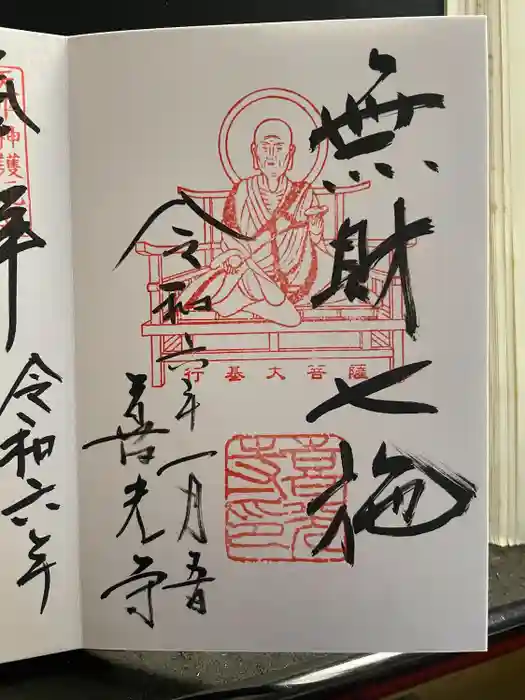 無財七施
行基大菩薩
令和六年一月五日
善光寺
神護
令和六年